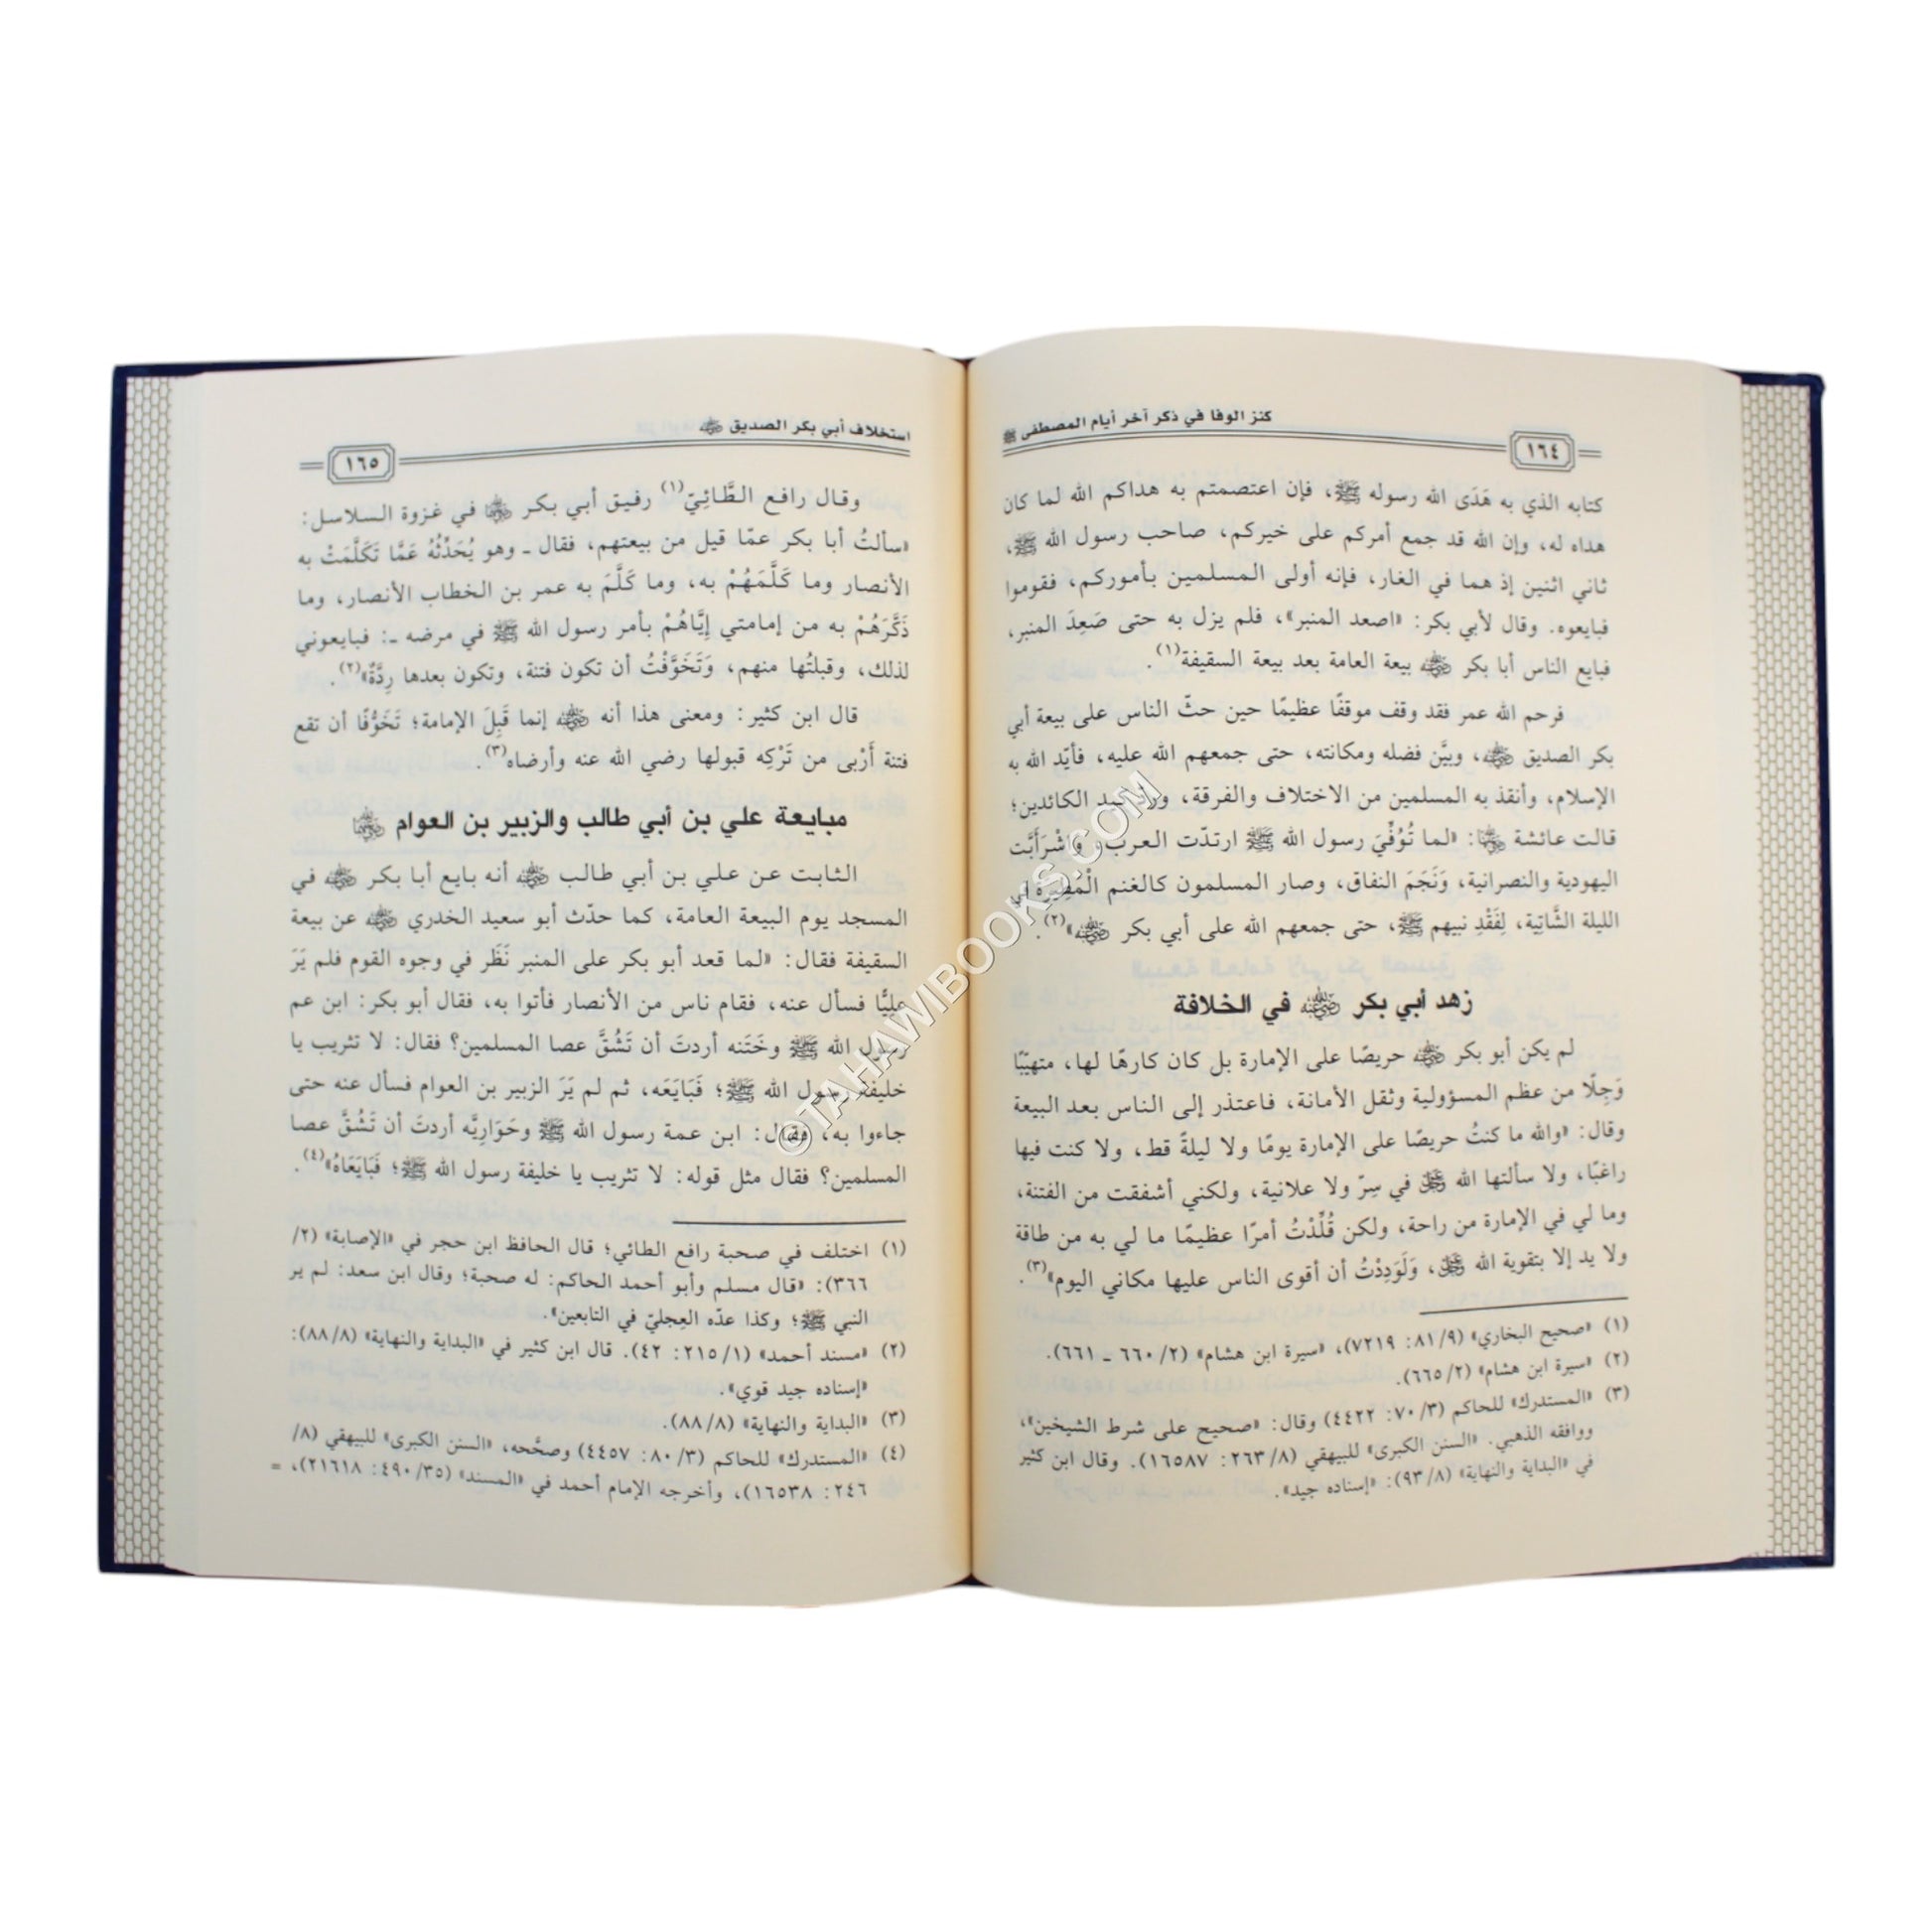 ١٦٤
كنز الوفا في ذكر آخر أيام المصطفى ﷺ
كتابه الذي به هَدَى الله رسوله ﷺ، فإن اعتصمتم به هداكم الله لما كان
هداه له، وإن الله قد جمع أمركم على خيركم، صاحب رسول الله ﷺ،
ثاني اثنين إذ هما في الغار، فإنه أولى المسلمين بأموركم، فقوموا
فبايعوه. وقال لأبي بكر: «اصعد المنبر»، فلم يزل به حتى صَعِدَ المنبر،
فبايع الناس أبا بكر رضي الله عنه بيعة العامة بعد بيعة السقيفة(١).
فرحم الله عمر فقد وقف موقفًا عظيمًا حين حثّ الناس على بيعة أبي
بكر الصديق رضي الله عنه، وبيَّن فضله ومكانته، حتى جمعهم الله عليه، فأيّد الله به
الإسلام، وأنقذ به المسلمين من الاختلاف والفرقة، كيد الكائدين؛
قالت عائشة رضي الله عنها: «لما تُوُفِّيَ رسول الله ﷺ ارتدّت العرب، وَاشْرَأَبَّت
اليهودية والنصرانية، وَنَجَمَ النفاق، وصار المسلمون كالغنم الْمَطِيرَة في
الليلة الشَّاتِية، لِفَقْدِ نبيهم ﷺ، حتى جمعهم الله على أبي بكر رضي الله عنه»(٢).
زهد أبي بكر رضي الله عنه في الخلافة
لم يكن أبو بكر رضي الله عنه حريصًا على الإمارة بل كان كارهًا لها، متهيّبًا
وَجِلًا من عظم المسؤولية وثقل الأمانة، فاعتذر إلى الناس بعد البيعة
وقال: «والله ما كنتُ حريصًا على الإمارة يومًا ولا ليلةً قط، ولا كنت فيها
راغبًا، ولا سألتها الله عز وجل في سِرّ ولا علانية، ولكني أشفقت من الفتنة،
وما لي في الإمارة من راحة، ولكن قُلِّدْتُ أمرًا عظيمًا ما لي به من طاقة
ولا يد إلا بتقوية الله عز وجل، وَلَوَدِدْتُ أن أقوى الناس عليها مكاني اليوم»(٣).
(١) «صحيح البخاري» (٨١/٩: ٧٢١٩)، «سيرة ابن هشام» (٦٦٠/٢ ـ ٦٦١).
(٢) «سيرة ابن هشام» (٦٦٥/٢).
(٣) «المستدرك» للحاكم (٧٠/٣: ٤٤٢٢) وقال: «صحيح على شرط الشيخين»،
ووافقه الذهبي. «السنن الكبرى» للبيهقي (٢٦٣/٨: ١٦٥٨٧). وقال ابن كثير
في «البداية والنهاية» (٩٣/٨): «إسناده جيد».
استخلاف أبي بكر الصديق رضي الله عنه
١٦٥
وقال رافع الطَّائِيّ(١) رفيق أبي بكر رضي الله عنهما في غزوة السلاسل:
«سألتُ أبا بكر عمّا قيل من بيعتهم، فقال ـ وهو يُحَدِّثُهُ عَمَّا تَكَلَّمَتْ به
الأنصار وما كَلَّمَهُمْ به، وما كَلَّمَ به عمر بن الخطاب الأنصار، وما
ذَكَّرَهُمْ به من إمامتي إِيَّاهُمْ بأمر رسول الله ﷺ في مرضه ـ: فبايعوني
لذلك، وقبلتُها منهم، وَتَخَوَّفْتُ أن تكون فتنة، وتكون بعدها رِدَّةٌ»(٢).
قال ابن كثير: ومعنى هذا أنه رضي الله عنه إنما قَبِلَ الإمامة؛ تَخَوُّفًا أن تقع
فتنة أَرْبى من تَرْكِه قبولها رضي الله عنه وأرضاه(٣).
مبايعة علي بن أبي طالب والزبير بن العوام رضي الله عنهما
الثابت عن علي بن أبي طالب رضي الله عنه أنه بايع أبا بكر رضي الله عنه في
المسجد يوم البيعة العامة، كما حدّث أبو سعيد الخدري رضي الله عنه عن بيعة
السقيفة فقال: «لما قعد أبو بكر على المنبر نَظَر في وجوه القوم فلم يَرَ
عليًّا فسأل عنه، فقام ناس من الأنصار فأتوا به، فقال أبو بكر: ابن عم
رسول الله ﷺ وخَتَنه أردتَ أن تَشُقَّ عصا المسلمين؟ فقال: لا تثريب يا
خليفة رسول الله ﷺ؛ فَبَايَعَه، ثم لم يَرَ الزبير بن العوام فسأل عنه حتى
جاءوا به، فقال: ابن عمة رسول الله ﷺ وحَوَارِيَّه أردتَ أن تَشُقَّ عصا
المسلمين؟ فقال مثل قوله: لا تثريب يا خليفة رسول الله ﷺ؛ فَبَايَعَاهُ»(٤).
(١) اختلف في صحبة رافع الطائي؛ قال الحافظ ابن حجر في «الإصابة» (٢/
٣٦٦): «قال مسلم وأبو أحمد الحاكم: له صحبة؛ وقال ابن سعد: لم ير
النبي ﷺ؛ وكذا عدّه العِجليّ في التابعين».
(٢) «مسند أحمد» (٢١٥/١: ٤٢). قال ابن كثير في «البداية والنهاية» (٨٨/٨):
«إسناده جيد قوي».
(٣) «البداية والنهاية» (٨٨/٨).
(٤) «المستدرك» للحاكم (٨٠/٣: ٤٤٥٧) وصحَّحه، «السنن الكبرى» للبيهقي (٨/
٢٤٦: ١٦٥٣٨)، وأخرجه الإمام أحمد في «المسند» (٤٩٠/٣٥: ٢١٦١٨)، =
©TAHAWIBOOKS.COM